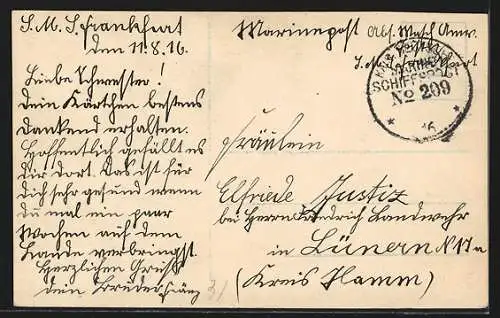 S. M. S. Frankfurt
den 11.8.16.
Liebe Schwester!
Dein Kärtchen bestens
dankend erhalten.
Hoffentlich gefällt es
dir dort. Das ist für
dich sehr gesund wenn
du mal ein paar
Wochen auf dem
Lande verbringst.
Herzlichen Gruß
dein Bruder Franz
Marinepost Abs. Anw.
S. M. S. Frankfurt
MARINE
SCHIFFSPOST
No 209
* 16 *
Fräulein
Elfriede Justiz
bei Herrn Friedrich Landwehr
in Lünern N 17a
(Kreis Hamm)